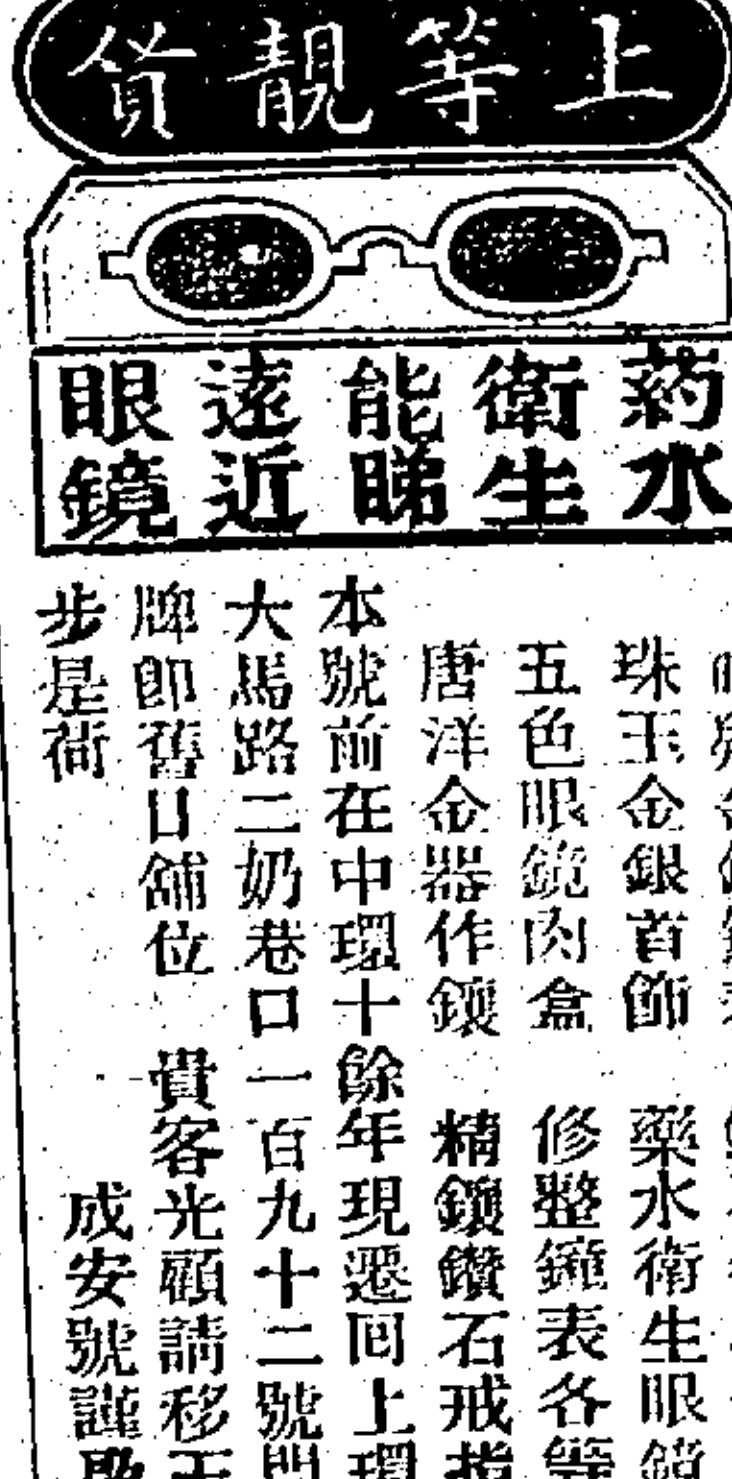 上等靚貨
药水
衛生
能睇
遠近
眼鏡
珠玉金銀首飾 藥水衛生眼鏡
五色眼鏡肉盒 修整鐘表各等
唐洋金器作鑲 精鑲鑽石戒指
本號前在中環十餘年現遷回上環
大馬路二奶巷口一百九十二號門
牌卽舊日舖位 貴客光顧請移玉
步是荷
成安號謹啟